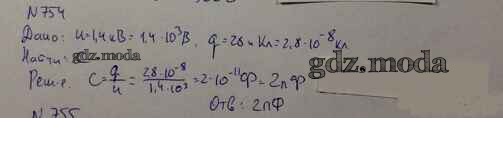 N 754
Дано: U=1,4 кВ = 1,4·10³В, q = 28 н Кл = 2,8·10⁻⁸ Кл
Найти:
gdz.moda
Реш-е. C = q/u = 2,8·10⁻⁸/1,4·10³ = 2·10⁻¹¹Ф = 2 п Ф
gdz.moda
Отв: 2пФ
N 755